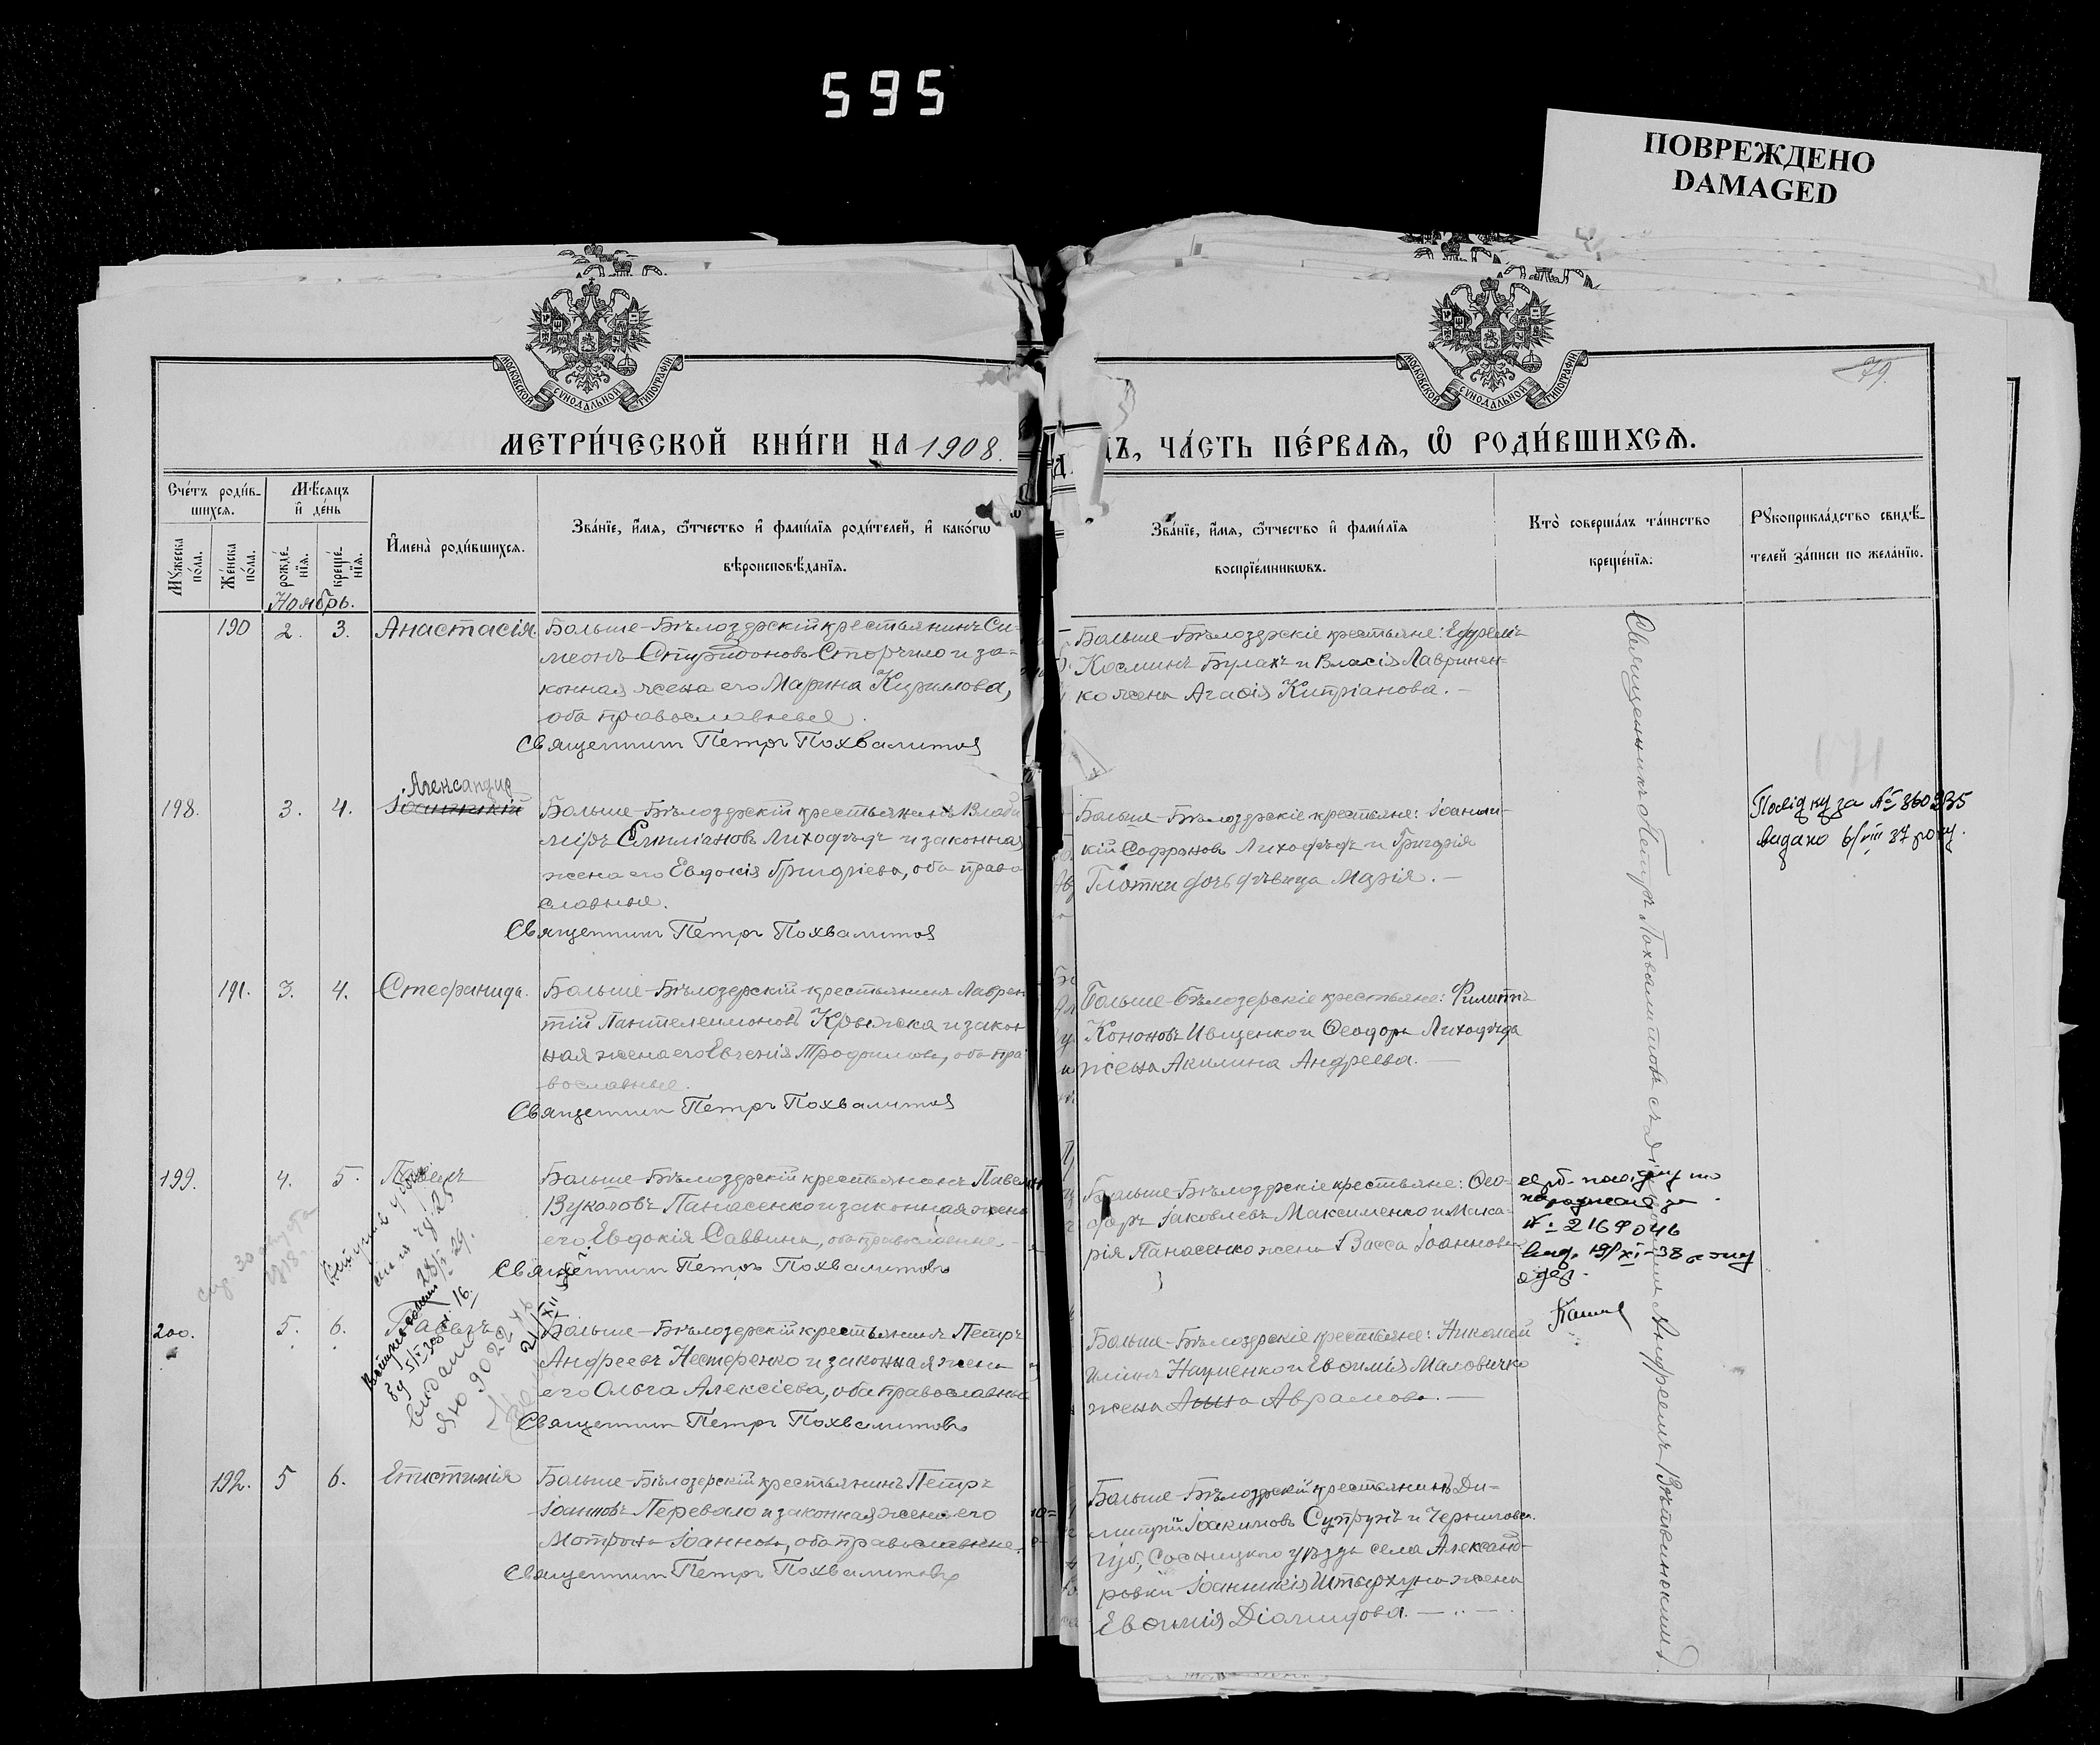 595
ПОВРЕЖДЕНО
DAMAGED
МОСКОВСКОЙ СѴНОДАЛЬНОЙ ТИПОГРАФІИ
МОСКОВСКОЙ СѴНОДАЛЬНОЙ ТИПОГРАФІИ
79.
МЕТРИ́ЧЕСКОЙ КНИ́ГИ НА 1908.
ДЪ, ЧА́СТЬ ПЕ́РВАѦ, Ѡ РОДИ́ВШИХСѦ.
Счéтъ роди́в-
шихсѧ.
Мѣ́сѧцъ
и҆ де́нь
Му́жеска по́ла.
Же́нска по́ла.
рожде́-
нїѧ.
креще́-
нїѧ.
И҆мена̀ роди́вшихсѧ.
Зва́нїе, и҆́мѧ, ѻ҆́тчество и҆ фами́лїѧ роди́телей, и҆ како́гѡ
вѣроисповѣ́данїѧ.
Зва́нїе, и҆́мѧ, ѻ҆́тчество и҆ фами́лїѧ
воспрїе́мникѡвъ.
Кто̀ соверша́лъ та́инство
креще́нїѧ.
Рꙋкоприкла́дство свидѣ́-
телей за́писи по жела́нїю.
Ноябрь.
190 2. 3. Анастасія.
Больше-Бѣлозерскій крестьянинъ Си-
меонъ Спиридоновъ Сторчило и за-
конная жена его Марина Кирилова,
оба православные.
Священникъ Петръ Похвалитовъ
Больше-Бѣлозерскіе крестьяне: Ефремъ
Косминъ Булахъ и Власія Лавринен-
ко жена Агафія Кипріанова. –
198. 3. 4. Александръ
Іоанникій
Больше-Бѣлозерскій крестьянинъ Влади
міръ Лиходѣдъ и законная
жена его Евдокія Григоріева, оба право
славные.
Священникъ Петръ Похвалитовъ
Больше-Бѣлозерскіе крестьяне: Іоанни-
кій Софроновъ Лиходѣдъ и Григорія
Глотки дочь дѣвица Марія. –
Посідку за № 860235
видано 6/VIII 37 року.
191. 3. 4. Стефанида.
Больше-Бѣлозерскій крестьянинъ Лаврен
тій Пантелеимоновъ и закон
ная жена его Евгенія Трофимова, оба пра
вославные.
Священникъ Петръ Похвалитовъ
Больше-Бѣлозерскіе крестьяне: Филиппъ
Кононовъ Ивщенко и Ѳеодора Лиходѣда
жена Акилина Андреева. –
199. 4. 5. Павелъ
Больше-Бѣлозерскій крестьянинъ Павелъ
Вуколовъ Панасенко и законная жена
его Евдокія Саввина, оба православные. –
Священникъ Петръ Похвалитовъ
Больше-Бѣлозерскіе крестьяне: Ѳео-
доръ Іаковлевъ Максименко и Мака-
рія Панасенко жена Васса Іоаннова
№ 2169046
вид. 19/XI-38 року
200. 5. 6. Павелъ
Больше-Бѣлозерскій крестьянинъ Петръ
Андреевъ Нестеренко и законная жена
его Ольга Алексіева, оба православные
Священникъ Петръ Похвалитовъ
Больше-Бѣлозерскіе крестьяне: Николай
Науменко и Евѳимія Маловичко
жена Анна Аврамова. –
192. 5 6. Епистимія
Больше-Бѣлозерскій крестьянинъ Петръ
Іоанновъ Перевало и законная жена его
Мотрона Іоаннова, оба православные.
Священникъ Петръ Похвалитовъ
Больше-Бѣлозерскій крестьянинъ Ди-
митрій Іоакимовъ Супрунъ и Черниговск.
губ., Сосницкаго уѣзда села Александ-
ровки Іоанникія жена
Евѳимія Діомидова. –
Священникъ Петръ Похвалитовъ съ